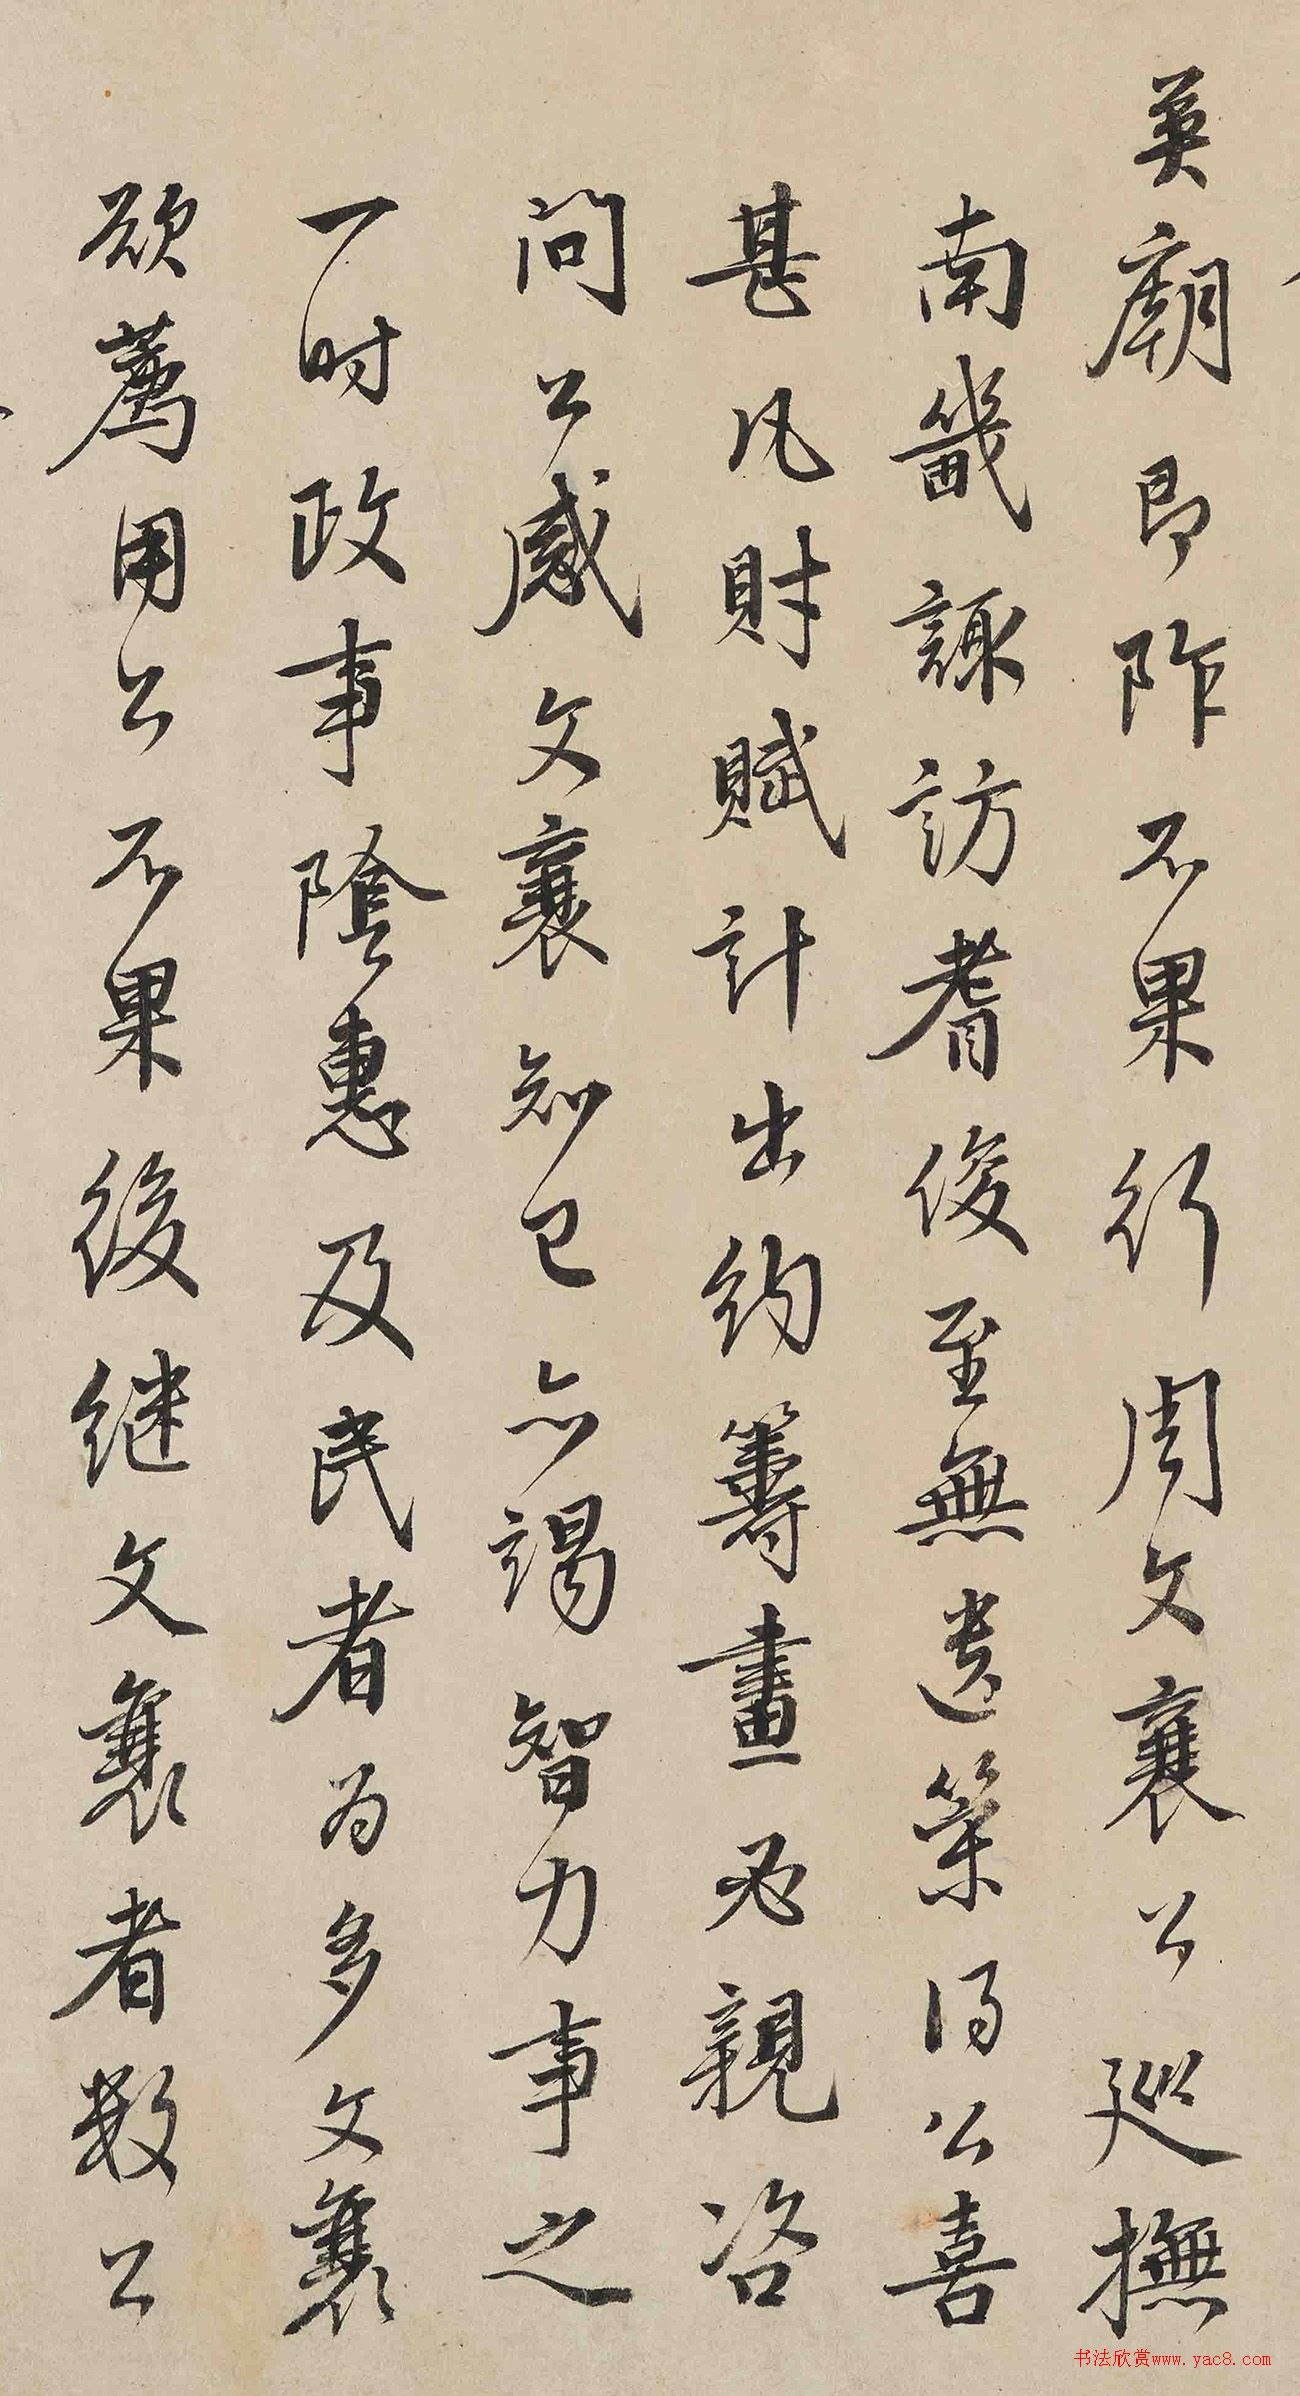 英廟即阼不果行周文襄公廵撫
南畿諏訪耆俊至無遺策得公喜
甚凡財賦計出納籌畫必親咨
問公感文襄知己亦竭智力事之
一時政事隂惠及民者为多文襄
欲薦用公不果後继文襄者数公
书法欣赏www.yac8.com